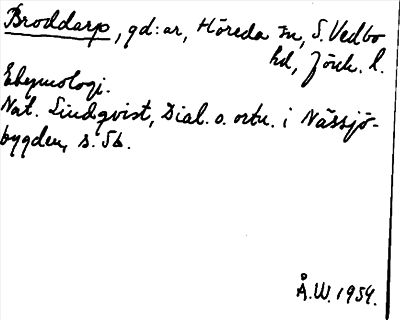 Broddarp, gd:ar, Höreda sn, S. Vedbo
hd, Jönk. l.
Etymologi.
Nat. Lindqvist, Dial. o. ortn. i Nässjö-
bygden, s. 56.
Å.W. 1954.